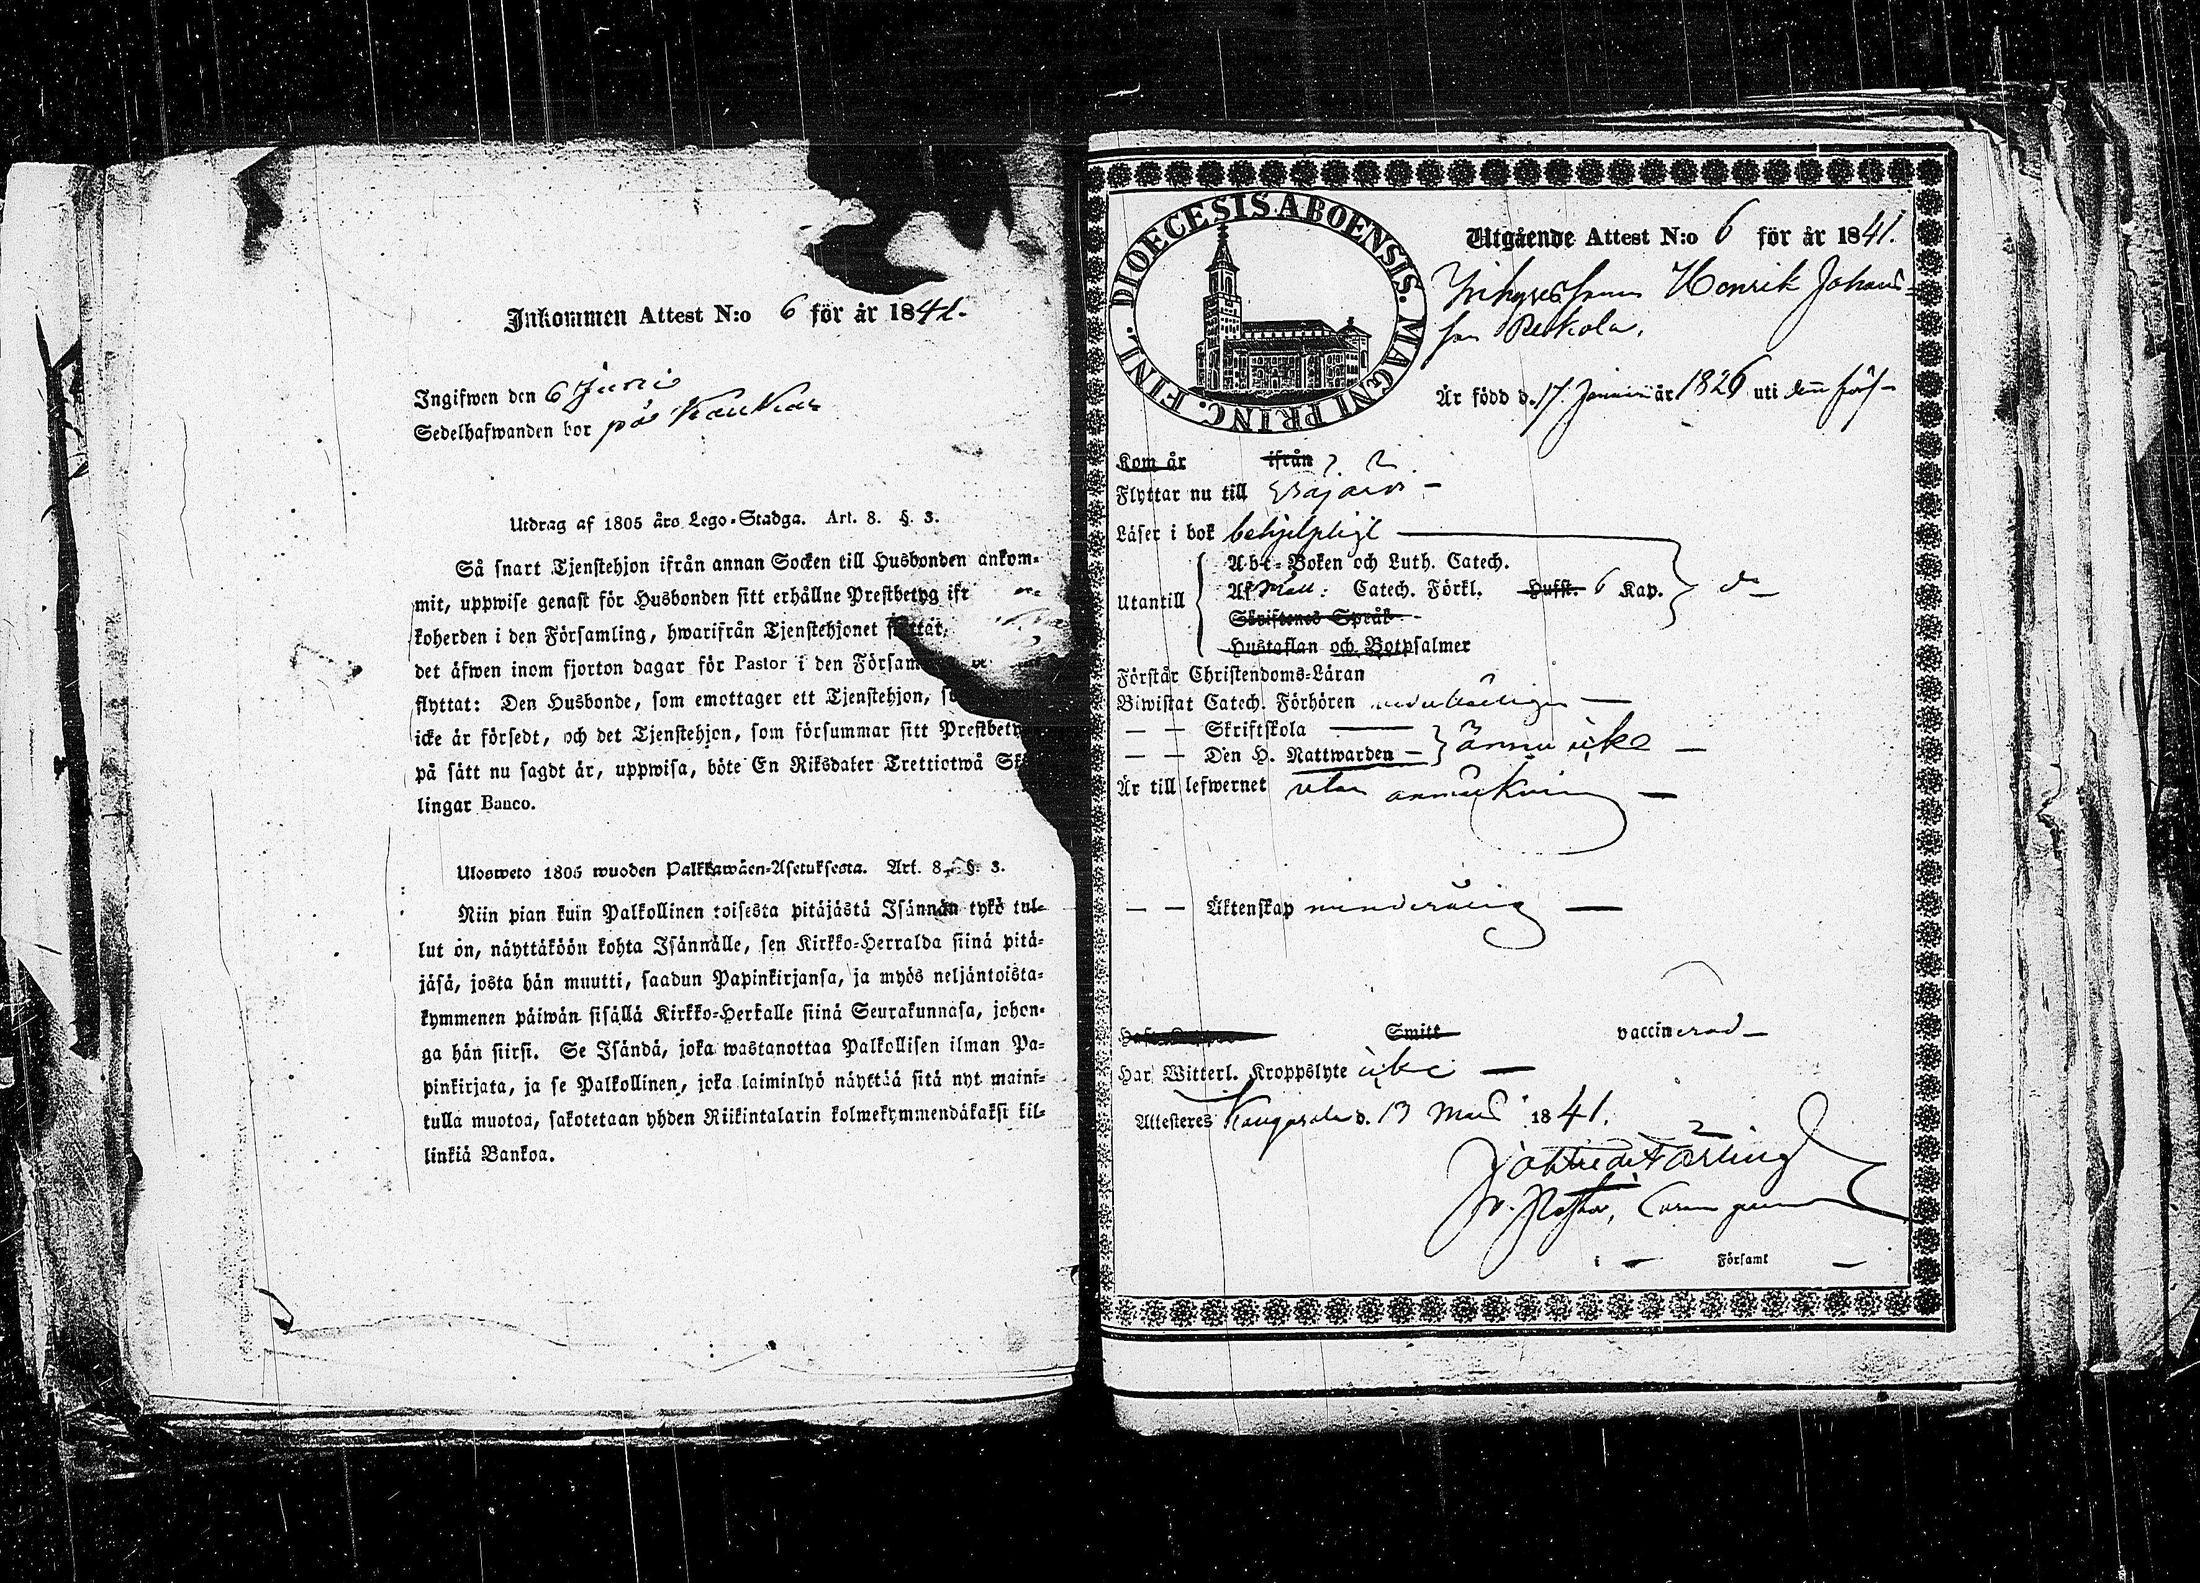 Inkommen Attest N:o 6 för år 1841.
Ingifwen den 6 Juni
Sedelhafwanden bor på
Utdrag af 1805 års Lego-Stadga. Art. 8. §. 3.
Så snart Tjenstehjon ifrån annan Socken till Husbonden ankom-
mit, uppwise genast för Husbonden sitt erhållne Prestbetyg
koherden i den Församling, hwarifrån Tjenstehjonet
det äfwen inom fjorton dagar för Pastor i den
flyttat: Den Husbonde, som emottager ett Tjenstehjon,
icke är försedt, och det Tjenstehjon, som försummar sitt
på sätt nu sagdt är, uppwisa, böte En Riksdaler Trettiotwå
lingar Banco.
Ulosweto 1805 wuoden Palkkawäen-Asetuksesta. Art. 8. §. 3.
Niin pian kuin Palkollinen toisesta pitäjästä Isännän tykö tul-
lut on, näyttäköön kohta Isännälle, sen Kirkko-Herralda siinä pitä-
jäsä, josta hän muutti, saadun Papinkirjansa, ja myös neljäntoista-
kymmenen päiwän sisällä Kirkko-Herralle siinä Seurakunnasa, johon-
ga hän siirsi. Se Isändä, joka wastanottaa Palkollisen ilman Pa-
pinkirjata, ja se Palkollinen, joka laiminlyö näyttää sitä nyt maini-
tulla muotoa, sakotetaan yhden Riikintalarin kolmekymmendäkaksi kil-
linkiä Bankoa.
DIOECESIS ABOENSIS. MAGNI PRINC. FINL.
Utgående Attest N:o 6 för år 1841.
Henrik Johans-
son
Är född d. 17 Januari år 1826 uti denna förs-
Kom år ifrån
Flyttar nu till
Läser i bok behjelpligt
Utantill
Abc-Boken och Luth. Catech.
Af Catech. Förkl. Hufst. 6 Kap.
Skriftenes Språk
Hustaflan och Botpsalmer
Förstår Christendoms-Läran
Biwistat Catech. Förhören
— — Skriftskola
— — Den H. Nattwarden — ännu icke —
Är till lefwernet utan anmärkning —
— — Äktenskap minderårig —
Smitt vaccinerad —
Har Witterl. Kroppslyte icke —
Attesteres Kangasala d. 13 1841.
i — Församl —